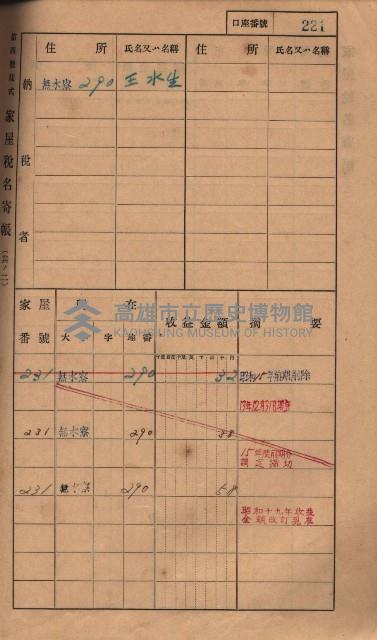 口座番號 221
第四號樣式 家屋稅名寄帳
納稅者
住所 氏名又ハ名稱 住所 氏名又ハ名稱
無水寮 290 王水生
家屋番號 所在 大字 地番 收益金額 摘要
231 無水寮 290 32 昭和15年前期削除
231 無水寮 290 38
15年度前期
231 290 58
昭和十九年收益
金額改訂
高雄市立歷史博物館
KAOHSIUNG MUSEUM OF HISTORY